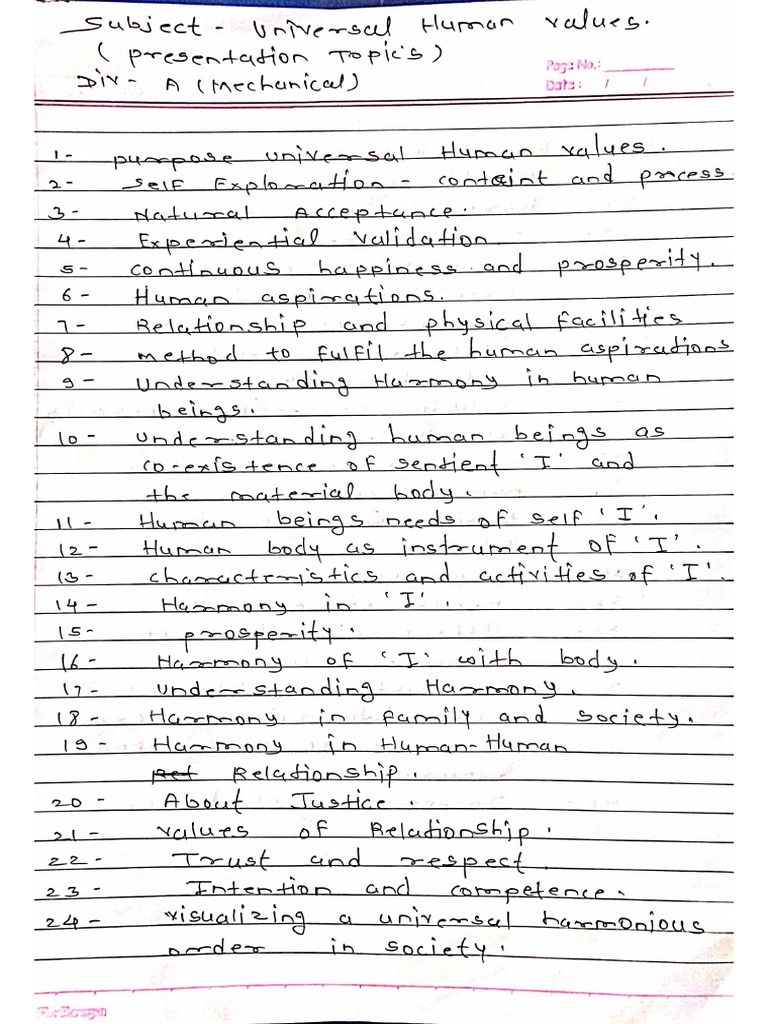 Subject - Universal Human Values.
( Presentation Topic's )
Page No.:
Div - A (Mechanical)
Date: / /
1- Purpose Universal Human Values.
2- Self Exploration - containt and process
3- Natural Acceptance.
4- Experiential Validation
5- continuous happiness and prosperity.
6- Human aspirations.
7- Relationship and physical facilities
8- method to fulfil the human aspirations
9- Understanding Harmony in human
beings.
10- Understanding human beings as
co-existence of sentient 'I' and
the material body.
11- Human beings needs of self 'I'.
12- Human body as instrument of 'I'.
13- characteristics and activities of 'I'.
14- Harmony in 'I'.
15- prosperity.
16- Harmony of 'I' with body.
17- Understanding Harmony.
18- Harmony in family and society.
19- Harmony in Human-Human
Relationship.
20- About Justice.
21- values of Relationship.
22- Trust and respect.
23- Intention and competence.
24- visualizing a universal harmonious
order in society.